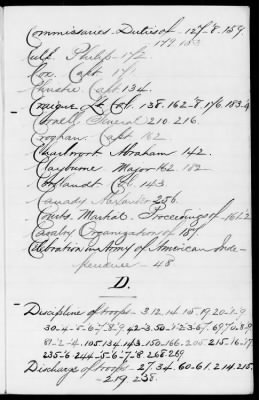 Commissaries. Duties of - 127-8. 159.
179 183
Culp. Philip - 172.
Cox. Capt 171
Christie Capt 134.
Cropique Lt Col. 138. 162-8. 176 183-4
Cornell General 210 216.
Croghan. Capt 162
Charlesrock Abraham 142.
Claybourne Major 162. 182-
Cortlandt Col. 143.
Canady Alexander 256.
Courts. Martial. Proceedings of 161.2
Cavalry Organization of 157
Celebration in Army of American Inde-
pendence - 48
D.
Discipline of troops - 3.12.14.15.19.20-1-9
30-4-5-6-7-8-9. 42-3.50-1-2-3-67.69 70-8-9
81-2-4.105.134.143.150.166.205.215-16-17
235-6.244-5-6-7-8 268-269
Discharge of troops - 27.34.60-61.214.215
219 258.